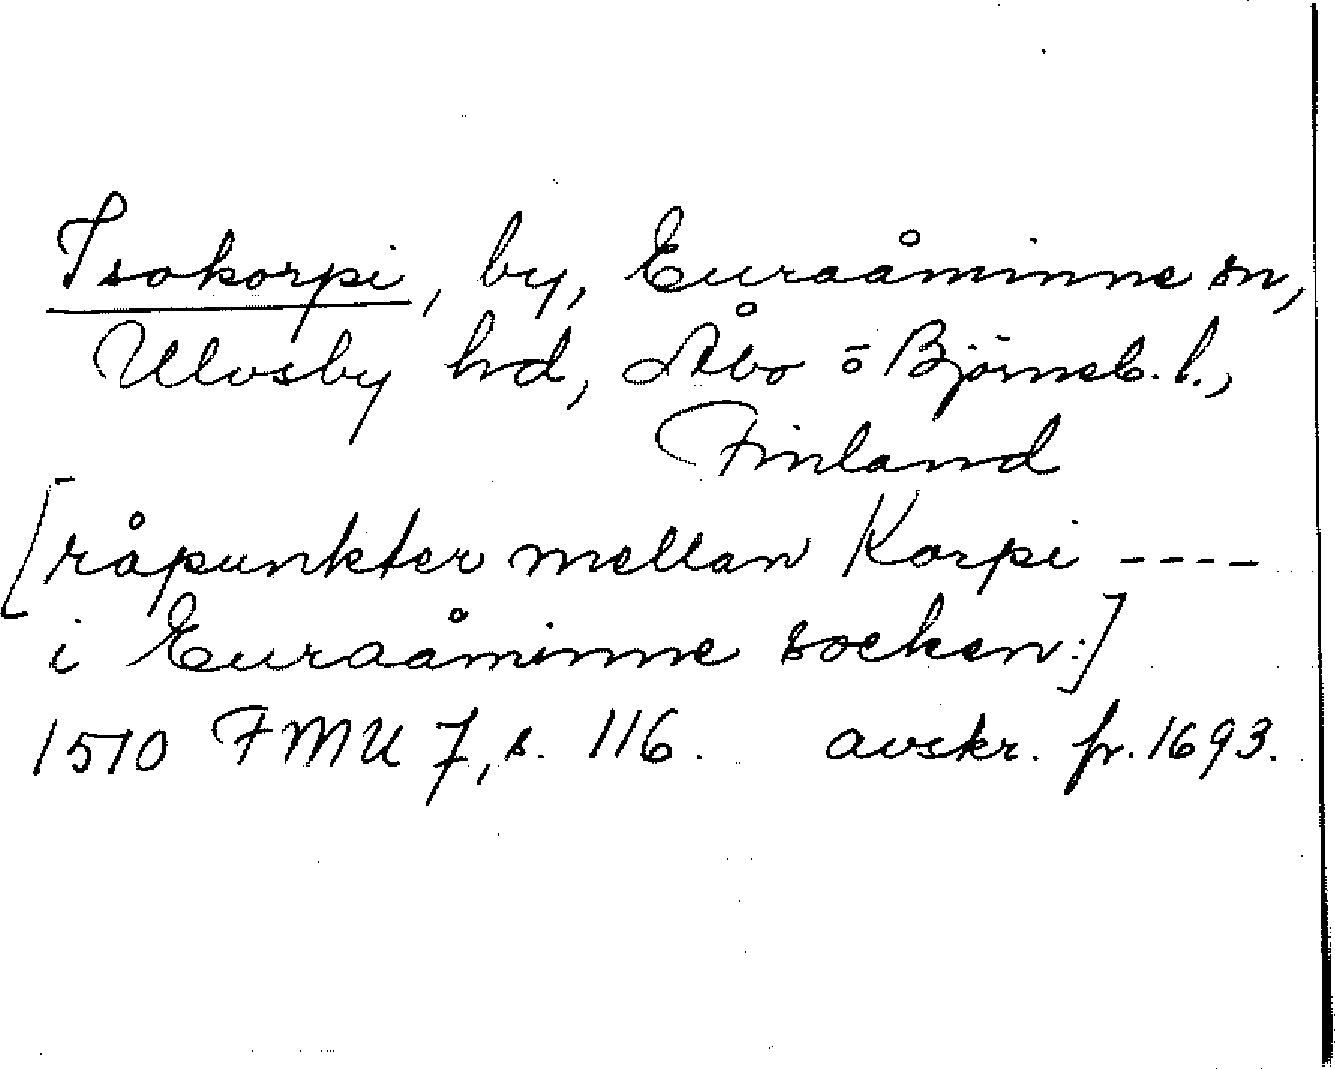 Isokorpi, by, Euraåminne sn,
Ulvsby hd, Åbo o Björneb. l.,
Finland
[råpunkter mellan Korpi ----
i Euraåminne socken:]
1510 FMU 7, s. 116. avskr. fr. 1693.